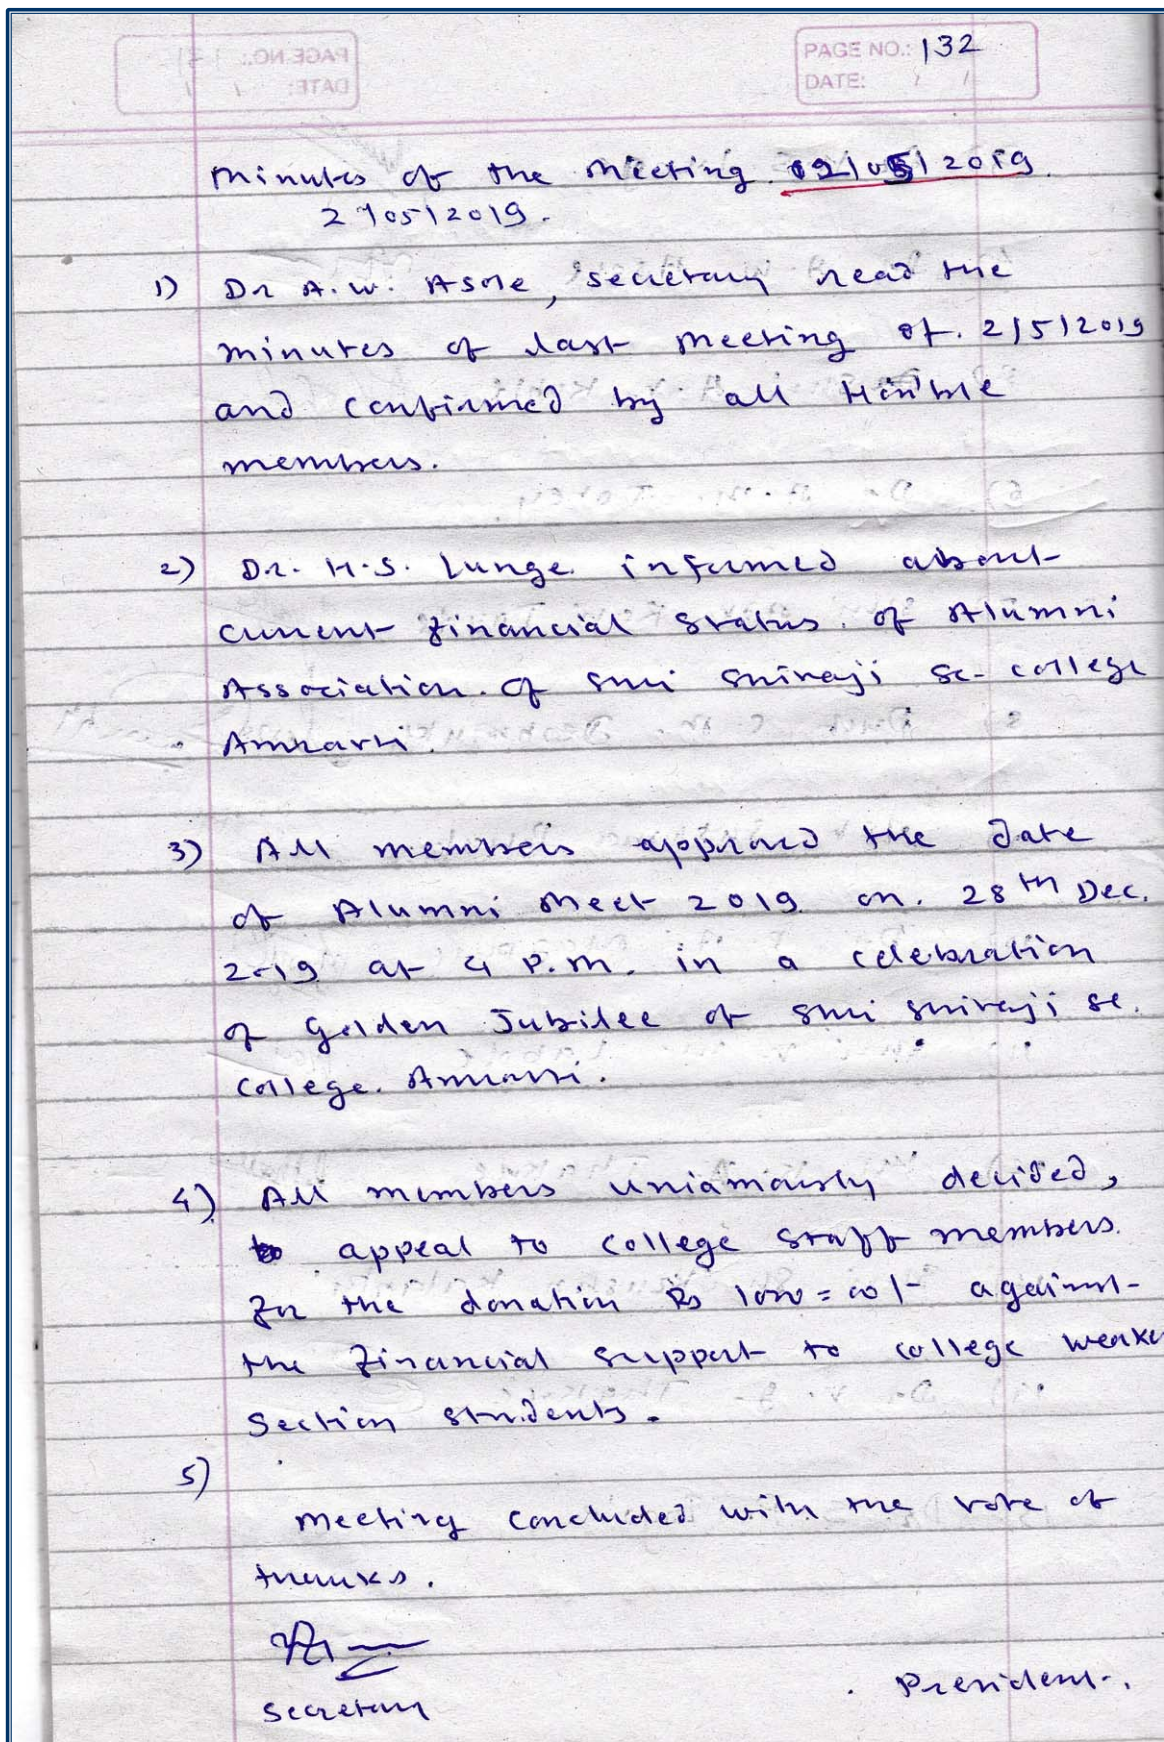 PAGE NO.: 132
DATE: / /
Minutes of the Meeting 02/05/2019.
2/05/2019.
1) Dr A.W. Asole, secretary read the
minutes of last meeting of. 2/5/2019
and confirmed by all Hon'ble
members.
2) Dr. H.S. Lunge. informed about
current financial status. of Alumni
Association. of Shri Shivaji Sc. college
Amravati.
3) All members approved the date
of Alumni Meet 2019. on. 28th Dec.
2019 at 4 P.m. in a celebration
of Golden Jubilee of Shri Shivaji Sc.
college. Amravati.
4) All members uniamously decided,
to appeal to college staff members.
for the donation Rs 1000=00/- against
the financial support to college weaker
section students.
5)
Meeting concluded with the vote of
thanks.
Secretary
President.